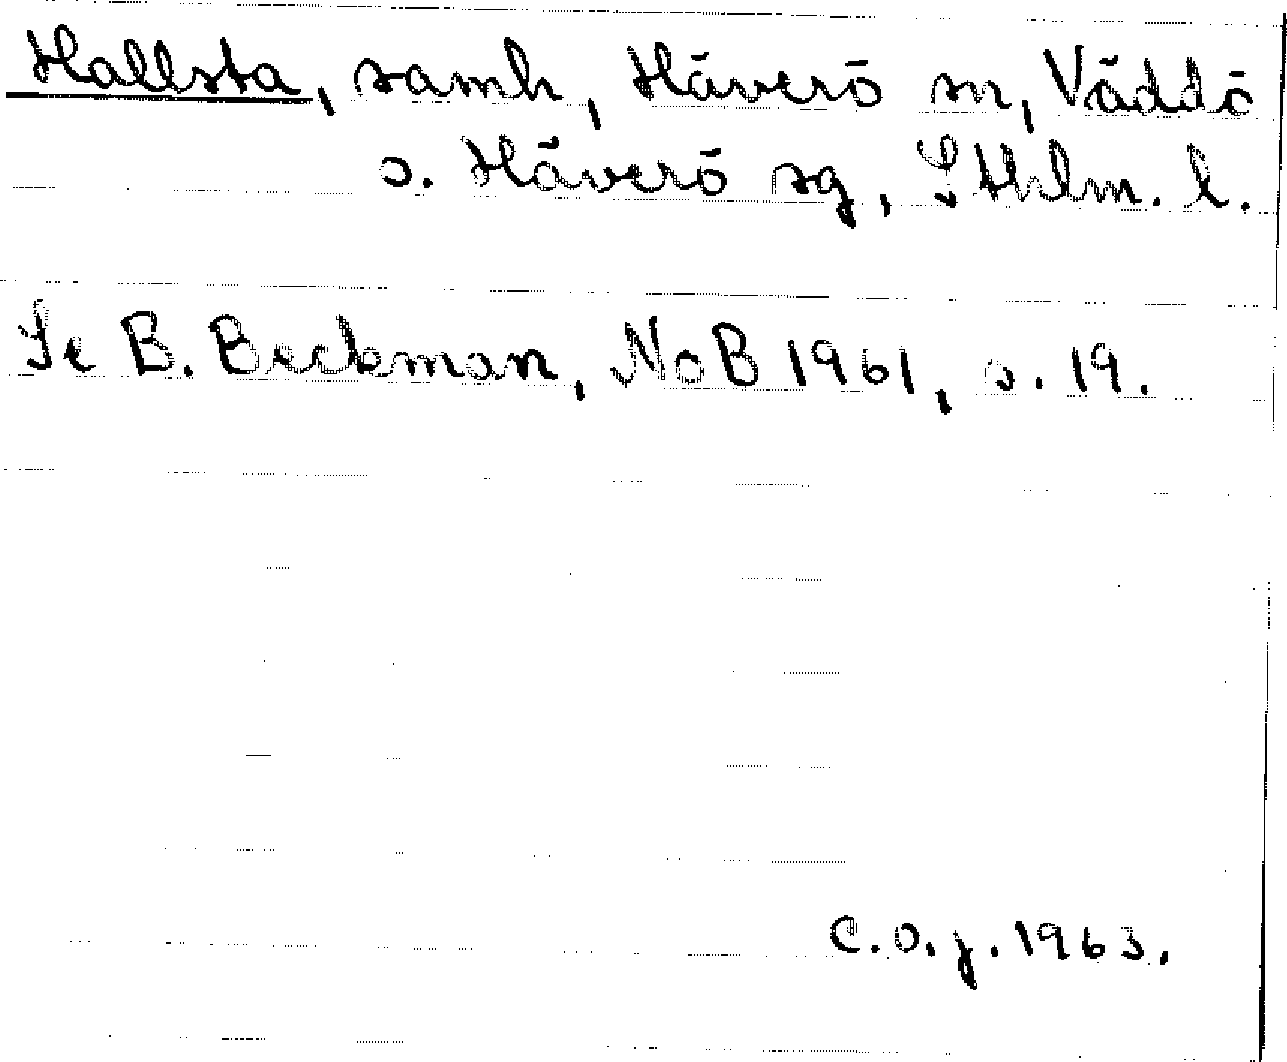 Hallsta, samh, Häverö sn, Väddö
o. Häverö sg, Sthlm. l.
Se B. Beckman, NoB 1961, s. 19.
C.O.j. 1963.